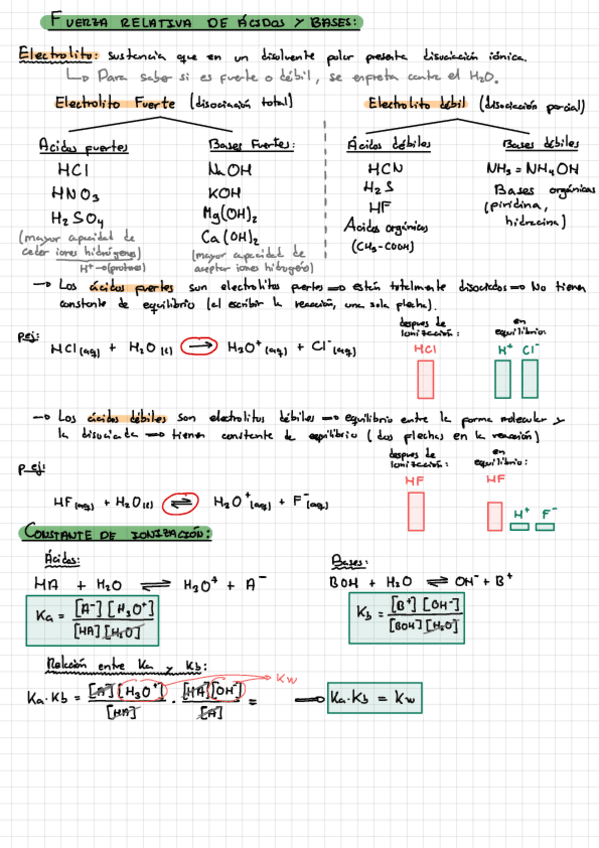 FUERZA RELATIVA DE ÁCIDOS Y BASES:
Electrolito: sustancia que en un disolvente polar presenta disociación iónica.
↳ Para saber si es fuerte o débil, se enfrenta contra el H₂O.
Electrolito Fuerte (disociación total)
Electrolito débil (disociación parcial)
Ácidos fuertes
HCl
HNO₃
H₂SO₄
(mayor capacidad de
ceder iones hidrógenos)
H⁺ → (protones)
Bases Fuertes:
NaOH
KOH
Mg(OH)₂
Ca(OH)₂
(mayor capacidad de
aceptar iones hidrógeno)
Ácidos débiles
HCN
H₂S
HF
Ácidos orgánicos
(CH₃-COOH)
Bases débiles
NH₃ = NH₄OH
Bases orgánicas
(piridina,
hidracina)
→ Los ácidos fuertes son electrolitos fuertes ⇒ están totalmente disociados ⇒ No tienen
constante de equilibrio (al escribir la reacción, una sola flecha).
p.ej:
HCl (aq) + H₂O (l) → H₃O⁺ (aq) + Cl⁻ (aq)
despues de
ionización:
HCl
en
equilibrio:
H⁺ Cl⁻
→ Los ácidos débiles son electrolitos débiles ⇒ equilibrio entre la forma molecular y
la disociada ⇒ tienen constante de equilibrio (dos flechas en la reacción)
p.ej:
HF (aq) + H₂O (l) ⇌ H₃O⁺ (aq) + F⁻ (aq)
despues de
ionización:
HF
en
equilibrio:
HF
H⁺ F⁻
CONSTANTE DE IONIZACIÓN:
Ácidos:
HA + H₂O ⇌ H₃O⁺ + A⁻
Ka = [A⁻][H₃O⁺] / [HA][H₂O]
Bases:
BOH + H₂O ⇌ OH⁻ + B⁺
Kb = [B⁺][OH⁻] / [BOH][H₂O]
Relación entre Ka y Kb:
Ka·Kb = [A⁻][H₃O⁺] / [HA] · [HA][OH⁻] / [A⁻] = → Kw
⇒ Ka·Kb = Kw